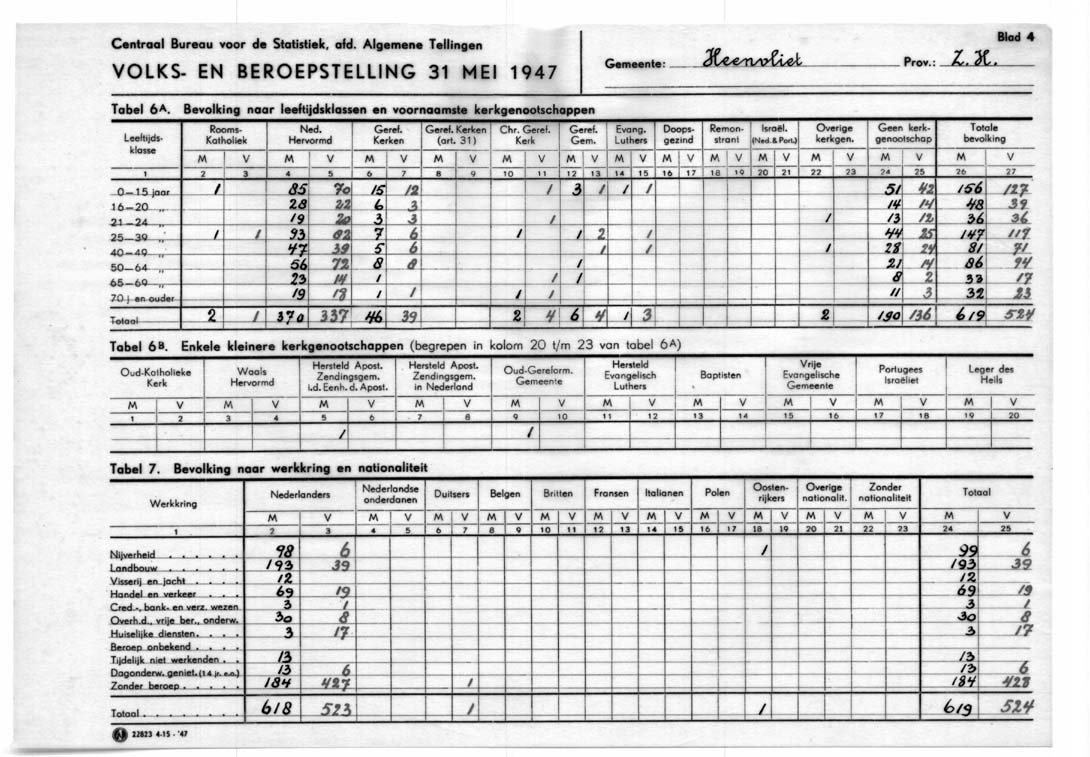 Centraal Bureau voor de Statistiek, afd. Algemene Tellingen
Blad 4
VOLKS- EN BEROEPSTELLING 31 MEI 1947
Gemeente: Heenvliet Prov.: Z.H.
Tabel 6A. Bevolking naar leeftijdsklassen en voornaamste kerkgenootschappen
Leeftijds-klasse Rooms-Katholiek Ned. Hervormd Geref. Kerken Geref. Kerken (art. 31) Chr. Geref. Kerk Geref. Gem. Evang. Luthers Doops-gezind Remon-strant Israël. (Ned. & Port.) Overige kerkgen. Geen kerk-genootschap Totale bevolking
M V M V M V M V M V M V M V M V M V M V M V M V M V
1 2 3 4 5 6 7 8 9 10 11 12 13 14 15 16 17 18 19 20 21 22 23 24 25 26 27
0—15 jaar 1 85 70 15 12 1 3 1 1 1 51 42 156 127
16—20 „ 28 22 6 3 14 14 48 39
21—24 „ 19 20 3 3 1 1 13 12 36 36
25—39 „ 1 1 93 82 7 6 1 1 2 1 44 25 147 117
40—49 „ 47 39 5 6 1 1 1 28 24 81 71
50—64 „ 56 72 8 8 1 21 14 86 94
65—69 „ 23 14 1 1 1 8 2 33 17
70 j en ouder 19 18 1 1 1 1 11 3 32 23
Totaal 2 1 370 337 46 39 2 4 6 4 1 3 2 190 136 619 524
Tabel 6B. Enkele kleinere kerkgenootschappen (begrepen in kolom 20 t/m 23 van tabel 6A)
Oud-Katholieke Kerk Waals Hervormd Hersteld Apost. Zendingsgem. i.d. Eenh. d. Apost. Hersteld Apost. Zendingsgem. in Nederland Oud-Gereform. Gemeente Hersteld Evangelisch Luthers Baptisten Vrije Evangelische Gemeente Portugees Israëliet Leger des Heils
M V M V M V M V M V M V M V M V M V M V
1 2 3 4 5 6 7 8 9 10 11 12 13 14 15 16 17 18 19 20
1 1
Tabel 7. Bevolking naar werkkring en nationaliteit
Werkkring Nederlanders Nederlandse onderdanen Duitsers Belgen Britten Fransen Italianen Polen Oosten-rijkers Overige nationalit. Zonder nationaliteit Totaal
M V M V M V M V M V M V M V M V M V M V M V M V
1 2 3 4 5 6 7 8 9 10 11 12 13 14 15 16 17 18 19 20 21 22 23 24 25
Nijverheid . . . . . . 98 6 1 99 6
Landbouw . . . . . . 193 39 193 39
Visserij en jacht . . . . 12 12
Handel en verkeer . . . 69 19 69 19
Cred.-, bank- en verz. wezen 3 1 3 1
Overh.d., vrije ber., onderw. 30 8 30 8
Huiselijke diensten. . . . 3 17 3 17
Beroep onbekend . . . .
Tijdelijk niet werkenden . . 13 13
Dagonderw. geniet. (14 jr. e.o.) 13 6 13 6
Zonder beroep . . . . . 184 427 1 184 428
Totaal . . . . . . . . 618 523 1 1 619 524
22823 4-15 - '47